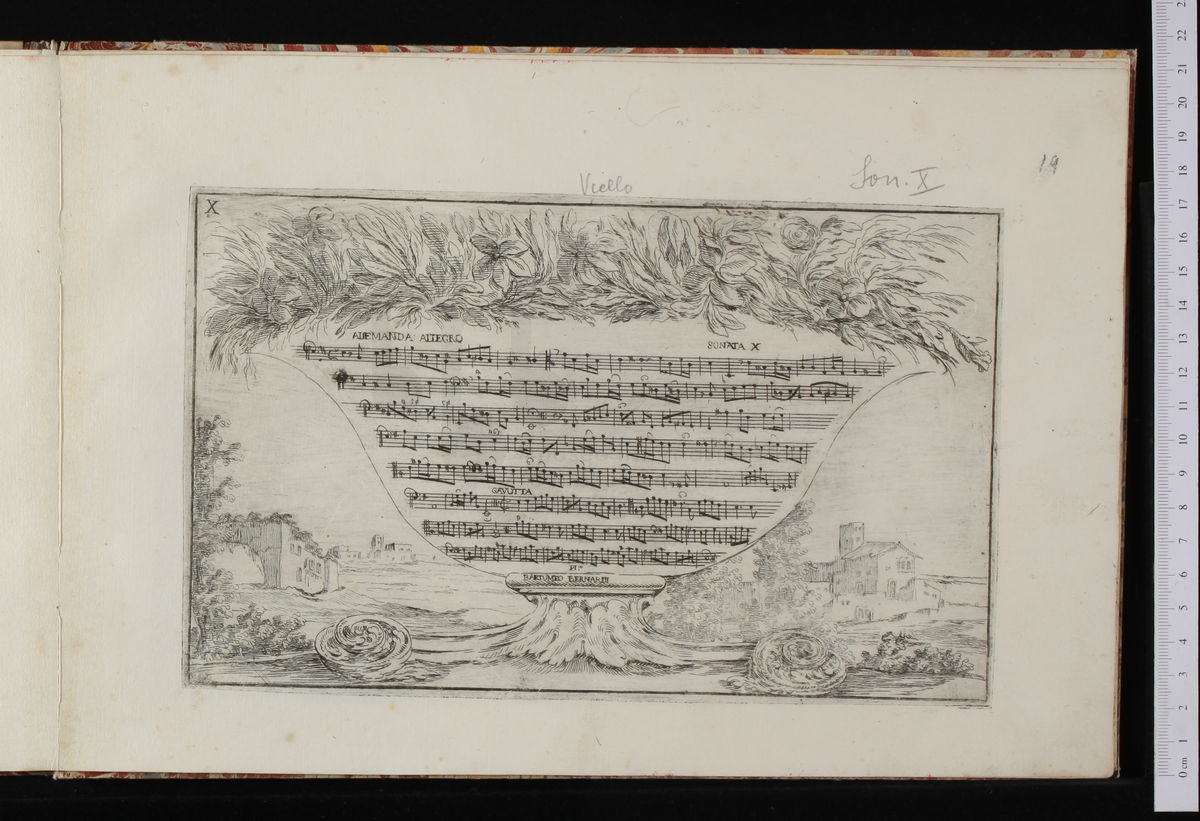 19
Son. X
Viello
X
ALLEMANDA ALLEGRO
SONATA X
GAVOTTA
BARTOMEO BERNARDI
22
21
20
19
18
17
16
15
14
13
12
11
10
9
8
7
6
5
4
3
2
1
0 cm